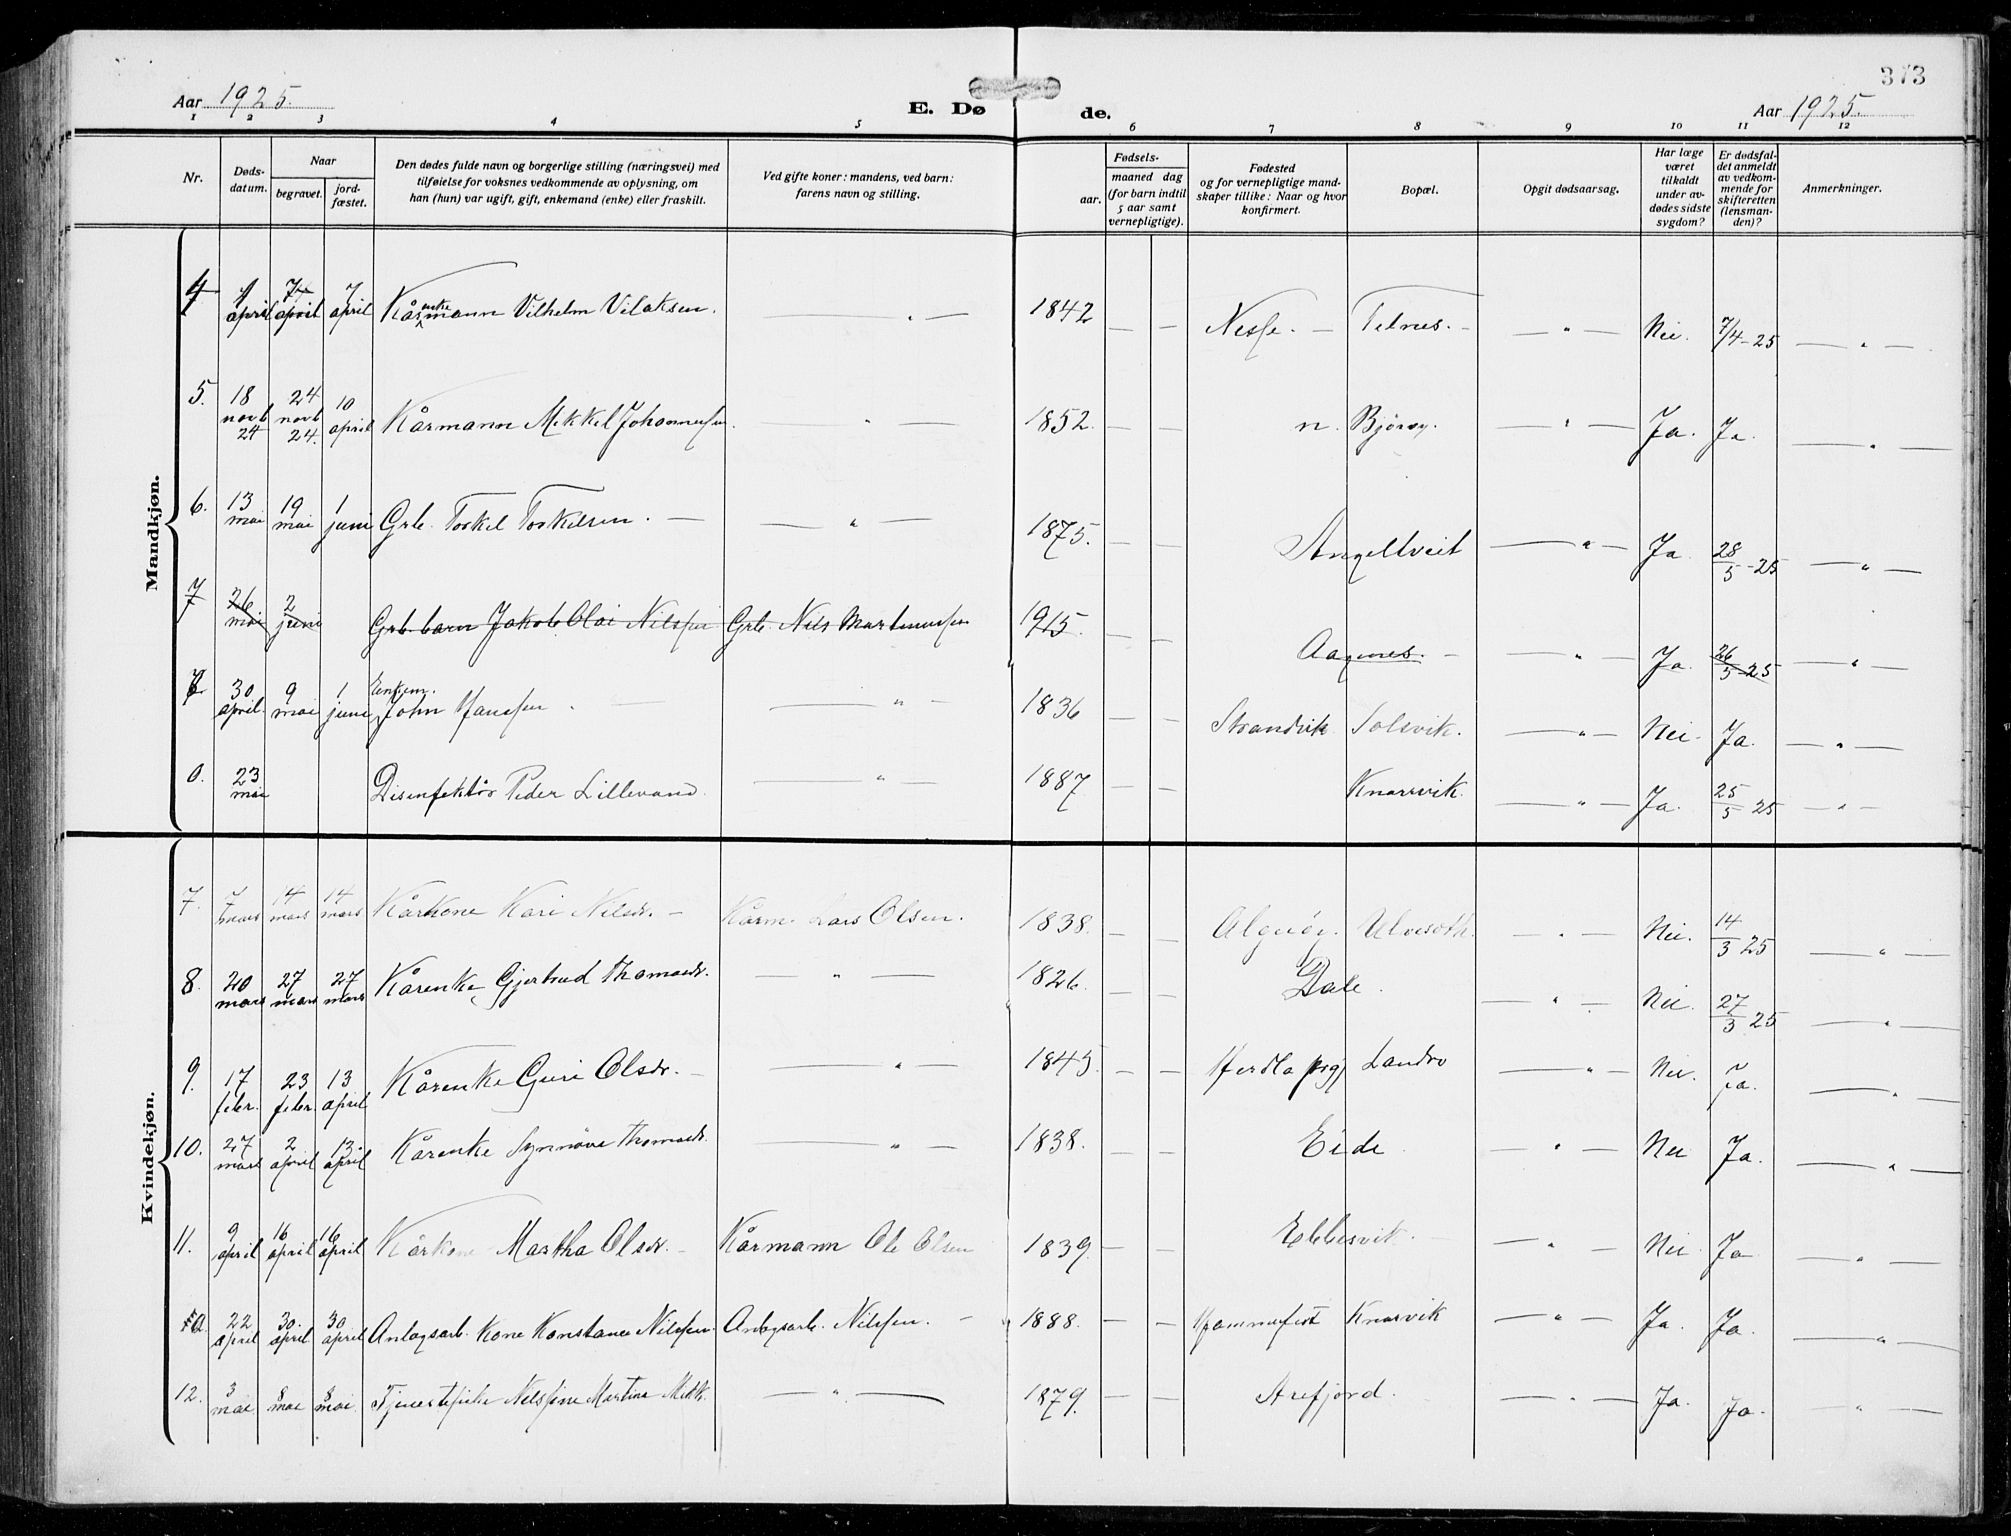 373
Aar 1925. E. Dø de. Aar 1925.
1 2 3 4 5 6 7 8 9 10 11 12
Nr. Døds-datum. Naar begravet. jord-fæstet. Den dødes fulde navn og borgerlige stilling (næringsvei) med tilføielse for voksnes vedkommende av oplysning, om han (hun) var ugift, gift, enkemand (enke) eller fraskilt. Ved gifte koner: mandens, ved barn: farens navn og stilling. Fødsels- aar. maaned dag (for barn indtil 5 aar samt vernepligtige). Fødested og for vernepligtige mand-skaper tillike: Naar og hvor konfirmert. Bopæl. Opgit dødsaarsag. Har læge været tilkaldt under av-dødes sidste sygdom? Er dødsfal-det anmeldt av vedkom-mende for skifteretten (lensman-den)? Anmerkninger.
Mandkjøn.
4 4 april 7 april 7 april Kårmann enke Vilhelm Vilaksen. — " — 1842 — — Nesse. — Telnes. — — " — Nei. 7/4-25 — " —
5. 18 novb 24 24 novb 24. 10 april Kårmann Mikkel Johannessen — " — 1852. — — n. Bjørøy. — " — Ja. Ja. — " —
6. 13 mai 19 mai 1 juni Grb. Torkel Torkelsen. — — " — 1875. — — Angeltveit — " — Ja 28/5-25 — " —
7 26 mai 2 juni Grb. barn Jakob Olai Nilssen Grb. Nils Martinussen 1915. — — Aagnes. — — " — Ja. 26/5-25 — " —
7 30 april. 9 mai 1 juni Enkem. John Hanssen — " — 1836 — — Strandvik Solsvik. — " — Nei. Ja. — " —
0. 23 mai Disinfektør Peder Lillevand. — " — 1887 — — Knarrvik. — " — Ja. 25/5 25 — " —
Kvindekjøn.
7. 7 mars 14 mars 14 mars Kårkone Kari Nilsdr. — Kårm. Lars Olsen. 1838. — — Algrøy. Ulvesøth. — " — Nei. 14/3 25 "
8. 20 mars 27 mars 27 mars Kårenke Gjertrud Thomasdr. — " — 1826. — — Dale. — " — Nei. 27/3 25 — " —
9. 17 febr. 23 febr. 13 april Kårenke Guri Olsdr. — — " — 1845. — — Herdla prgj Landro — " — Nei. Ja. — " —
10. 27 mars 2 april 13. april Kårenke Synnøve Thomasdr. — " — 1838. — — Eide — " — Nei Ja. — " —
11. 9 april 16 april 16 april Kårkone Martha Olsdr. — Kårmann Ole Olsen 1839. — — Ebbesvik. — " — Nei. Ja — " —
22 april 30. april 30 april Anlagsarb. kone Konstance Nilssen. Anlagsarb. Nilssen. — 1888. — — Hammerfest Knarvik — " — Ja. Ja. — " —
12. 3 mai. 8 mai 8 mai. Tjenestepike Nilssine Martina Mikk. — " — 1879. — — Arefjord. — " — Ja. Ja. — " —